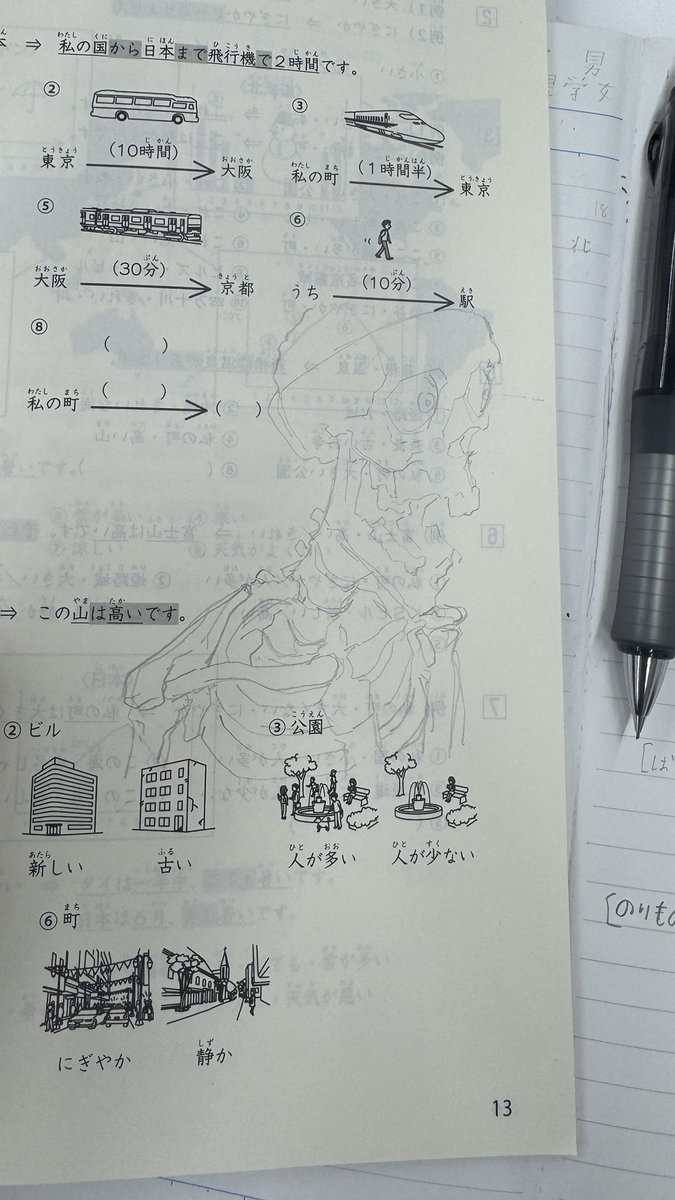 ⇒ 私の国から日本まで飛行機で2時間です。
② ③
東京 (10時間) 大阪 私の町 (1時間半) 東京
⑤ ⑥
大阪 (30分) 京都 うち (10分) 駅
⑧
( )
私の町 ( ) ( )
⇒ この山は高いです。
② ビル ③ 公園
新しい 古い 人が多い 人が少ない
⑥ 町
にぎやか 静か
13
男
北
18
[のりもの